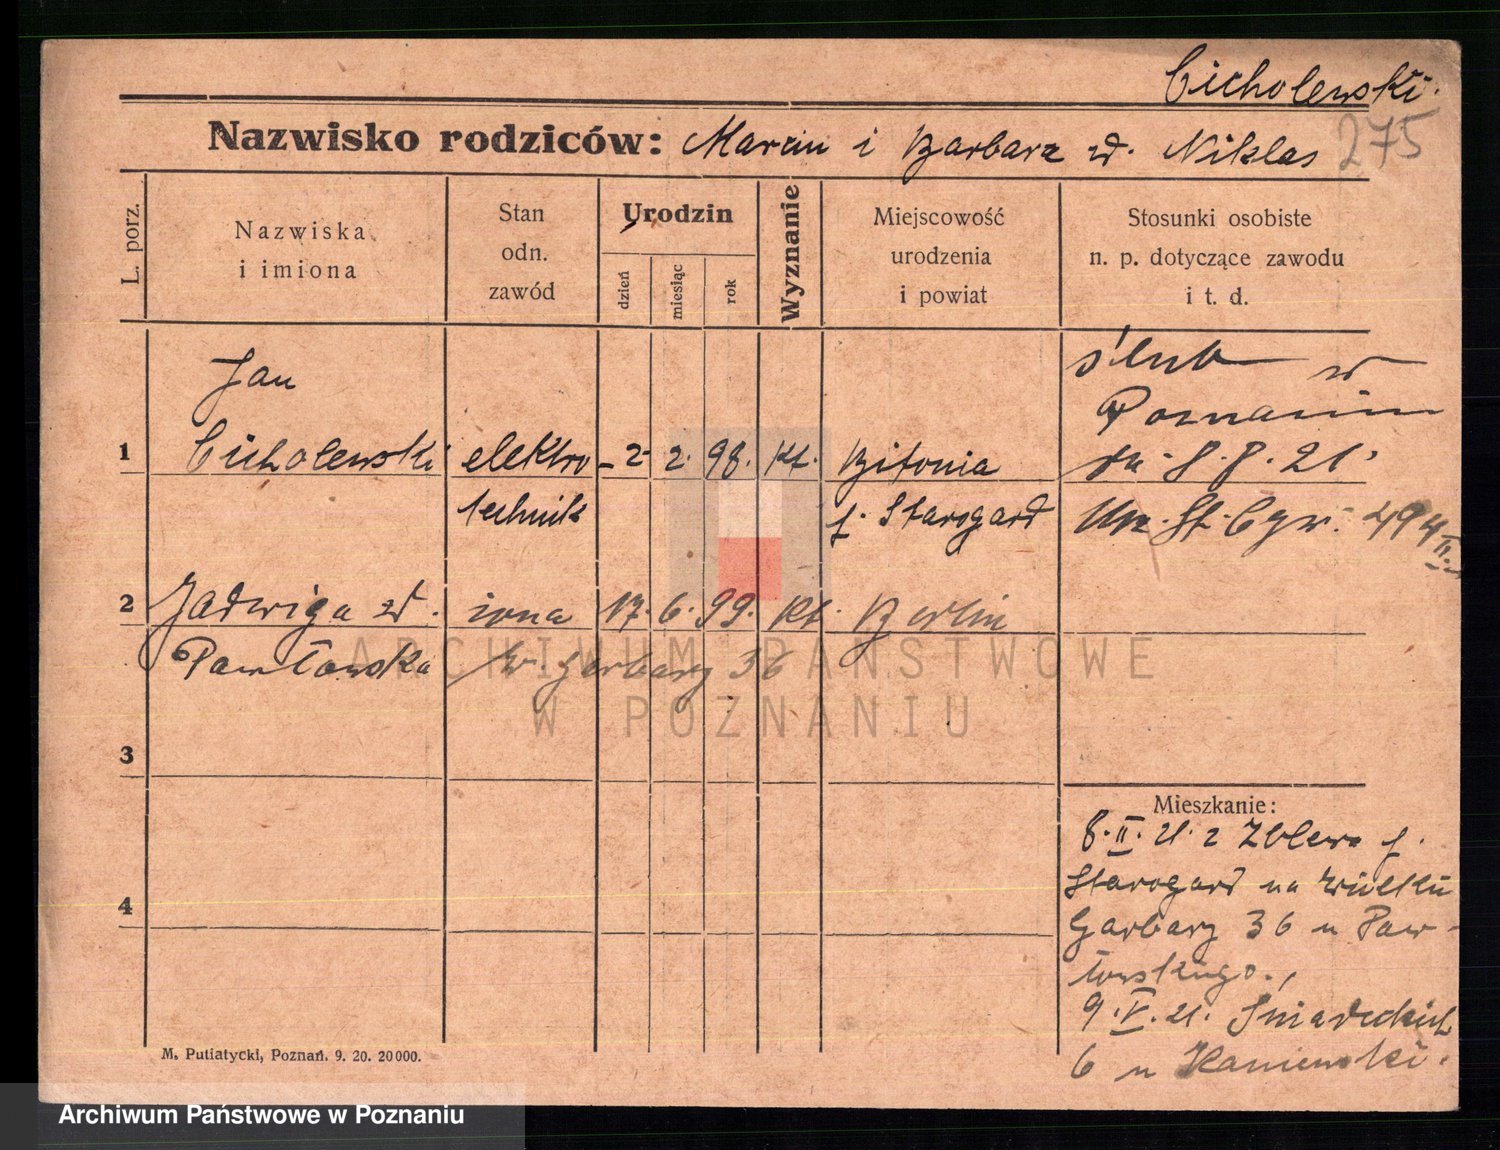 Cicholewski
Nazwisko rodziców: Marcin i Barbara zd. Niklas 275
L. porz.
Nazwiska i imiona
Stan odn. zawód
Urodzin
dzień
miesiąc
rok
Wyznanie
Miejscowość urodzenia i powiat
Stosunki osobiste n. p. dotyczące zawodu i t. d.
Jan
1 Cicholewski elektro- 2. 2. 98. kt. Bitonia
technik p. Starogard
ślub w
Poznaniu
dn. 8.8.21.
Urz. St. Cyw. 494 II.
2 Jadwiga zd. żona 17. 6. 99. kt. Berlin
Pawłowska W. Garbary 36
3
4
Mieszkanie:
8.II.21. z Zblewo p.
Starogard na Wielkie
Garbary 36 u Paw-
łowskiego.,
9.V.21. Śniadeckich
6 u Kaniewski.
M. Putiatycki, Poznań. 9. 20. 20000.
ARCHIWUM PAŃSTWOWE
W POZNANIU
Archiwum Państwowe w Poznaniu